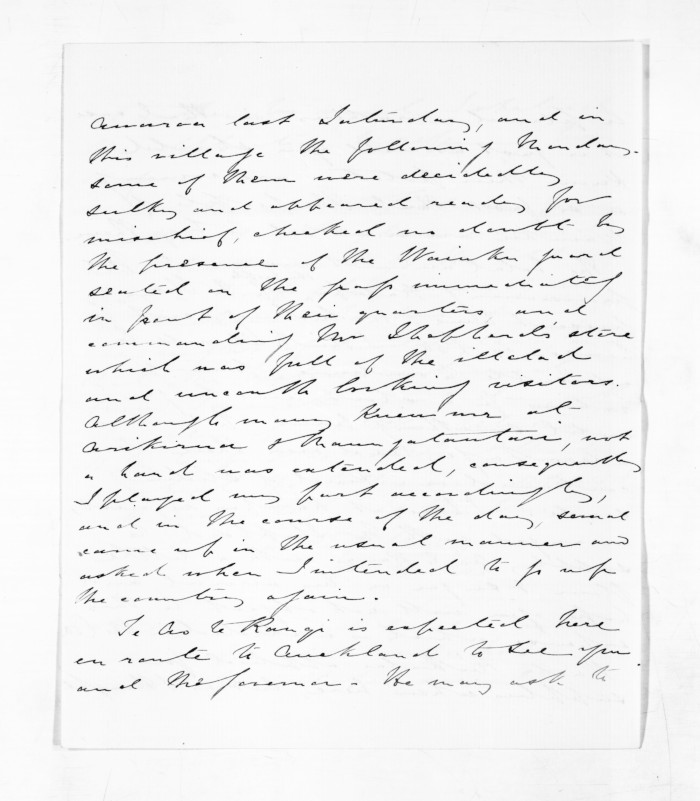 Awaroa last Saturday, and in
this village the following Monday.
some of them were decidedly
sulky and appeared ready for
mischief, checked no doubt by
the presence of the Waiuku guard
seated on the grass immediately
in front of their quarters and
commanding Mr Shepherd's store
which was full of the illclad
and uncouth looking visitors.
Although many knew me at
& Maungatautari, not
a hand was extended, consequently
I played my part accordingly,
and in the course of the day, several
came up in the usual manner and
asked when I intended to go up
the country again.
Te Ao te Rangi is expected here
en route to Auckland to see you
and the Governor - He may ask to